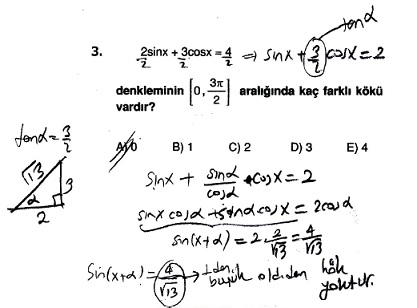 tanα
3. 2sinx/2 + 3cosx/2 = 4/2 ⇒ sinx + 3/2 cosx = 2
denkleminin [0, 3π/2] aralığında kaç farklı kökü
vardır?
A) 0 B) 1 C) 2 D) 3 E) 4
tanα = 3/2
√13 3
α
2
sinx + sinα/cosα • cosx = 2
sinx cosα + sinα cosx = 2cosα
sin(x+α) = 2 · 2/√13 = 4/√13
sin(x+α) = 4/√13 → 1 den büyük old.den kök
yoktur.